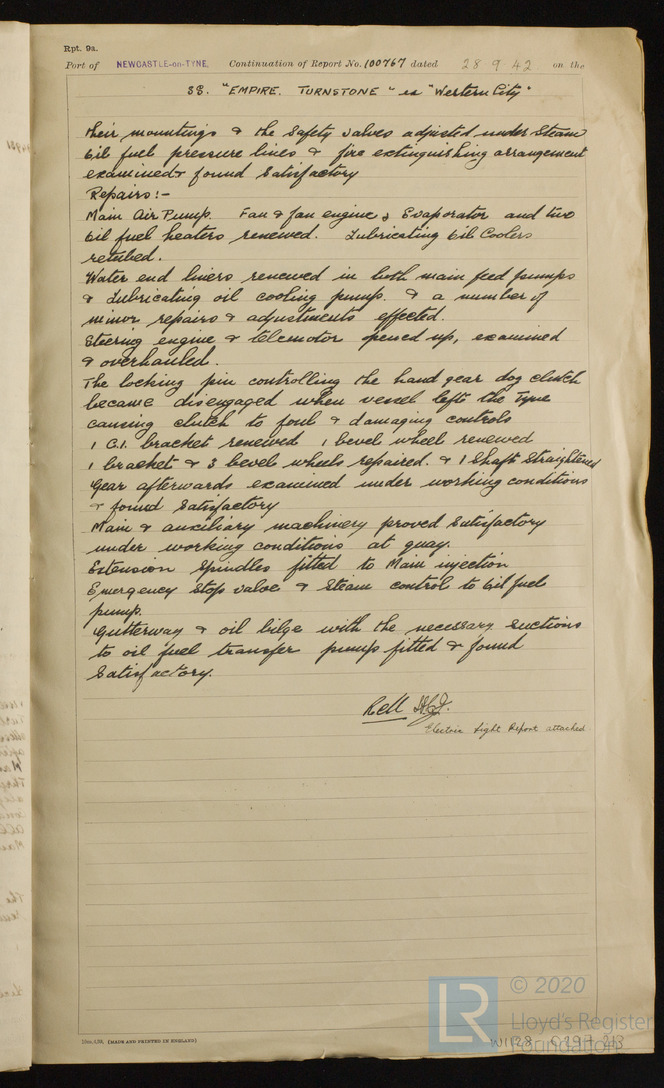 Rpt. 9a.
Port of NEWCASTLE-on-TYNE. Continuation of Report No. 100767 dated 28 9 42 on the
SS. "EMPIRE. TURNSTONE" ex "Western City"
their mountings & the Safety valves adjusted under Steam
Oil fuel pressure lines & fire extinguishing arrangement
examined & found Satisfactory
Repairs:-
Main Air Pump. Fan & fan engine, Evaporator and two
Oil fuel heaters renewed. Lubricating Oil Coolers
retubed.
Water end liners renewed in both main feed pumps
& Lubricating oil cooling pump. & a number of
minor repairs & adjustments effected.
Steering engine & telemotor opened up, examined
& overhauled.
The locking pin controlling the hand gear dog clutch
became disengaged when vessel left the Tyne
causing clutch to foul & damaging controls
1 C.I. bracket renewed 1 bevel wheel renewed
1 bracket & 3 bevel wheels repaired. & 1 Shaft Straightened
Gear afterwards examined under working conditions
& found Satisfactory
Main & auxiliary machinery proved Satisfactory
under working conditions at quay.
Extension Spindles fitted to Main injection
Emergency Stop valve & Steam control to Oil fuel
pump.
Gutterway & oil bilge with the necessary Suctions
to oil fuel transfer pumps fitted & found
Satisfactory.
Electric Light Report attached
(MADE AND PRINTED IN ENGLAND)
LR
© 2020
Lloyd's Register
Foundation
W1128 0297 213